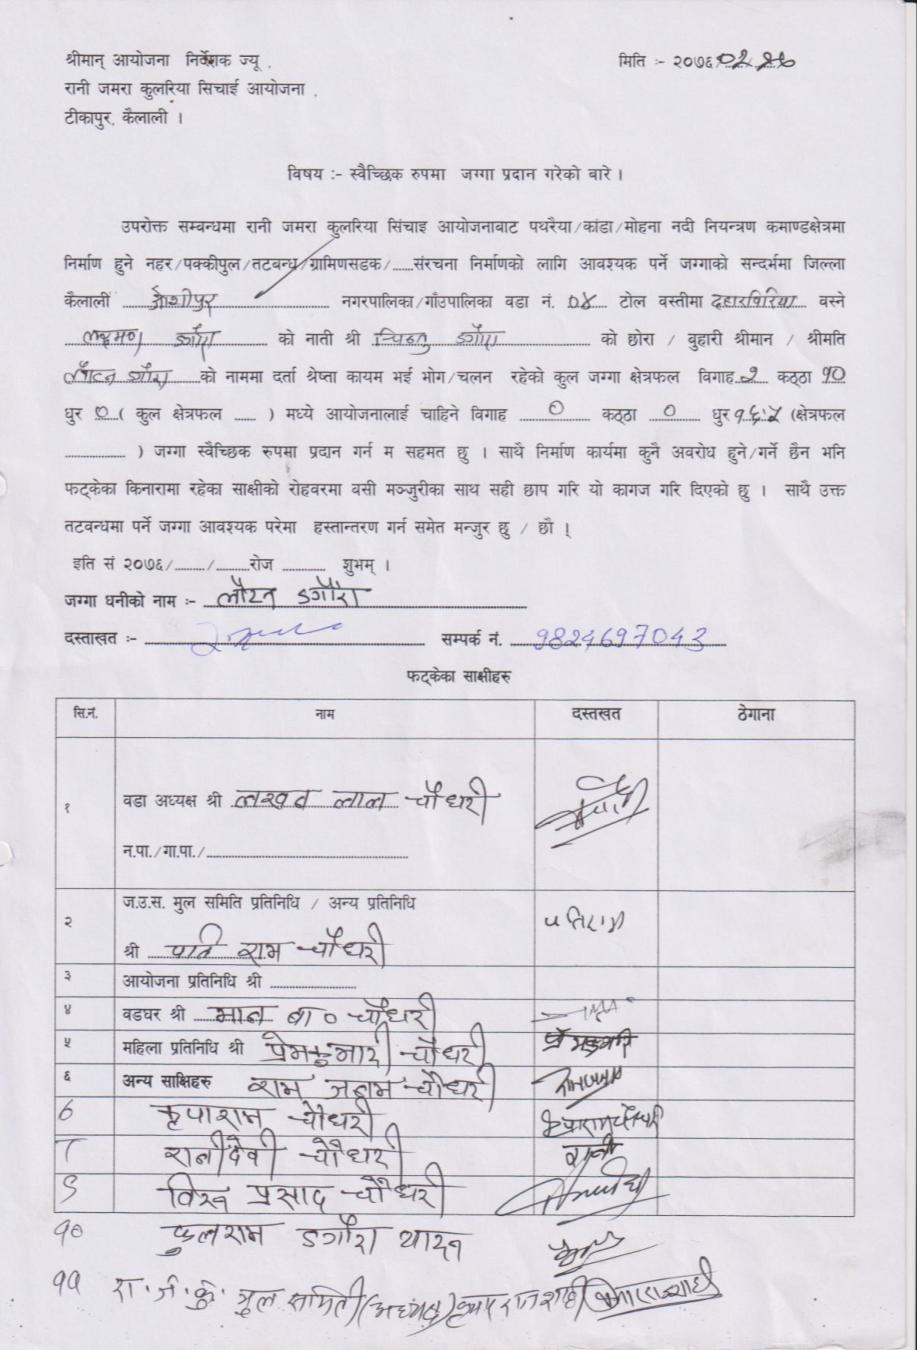 श्रीमान् आयोजना निर्देशक ज्यू ,
मिति :- २०७६
रानी जमरा कुलरिया सिचाई आयोजना ,
टीकापुर, कैलाली ।
विषय :- स्वैच्छिक रुपमा जग्गा प्रदान गरेको बारे ।
उपरोक्त सम्बन्धमा रानी जमरा कुलरिया सिंचाइ आयोजनाबाट पथरैया/कांडा/मोहना नदी नियन्त्रण कमाण्डक्षेत्रमा
निर्माण हुने नहर/पक्कीपुल/तटबन्ध/ग्रामिणसडक/......संरचना निर्माणको लागि आवश्यक पर्ने जग्गाको सन्दर्भमा जिल्ला
कैलाली जोशीपुर नगरपालिका/गाँउपालिका वडा नं. ०४ टोल वस्तीमा वस्ने
को नाती श्री को छोरा / बुहारी श्रीमान / श्रीमति
लौटन डगौरा को नाममा दर्ता श्रेष्ता कायम भई भोग/चलन रहेको कुल जग्गा क्षेत्रफल विगाह २ कठ्ठा १०
धुर ० ( कुल क्षेत्रफल ...... ) मध्ये आयोजनालाई चाहिने विगाह ० कठ्ठा ० धुर (क्षेत्रफल
.................. ) जग्गा स्वैच्छिक रुपमा प्रदान गर्न म सहमत छु । साथै निर्माण कार्यमा कुनै अवरोध हुने/गर्ने छैन भनि
फट्केका किनारामा रहेका साक्षीको रोहवरमा वसी मञ्जुरीका साथ सही छाप गरि यो कागज गरि दिएको छु । साथै उक्त
तटवन्धमा पर्ने जग्गा आवश्यक परेमा हस्तान्तरण गर्न समेत मन्जुर छु / छौ ।
इति सं २०७६/........./.........रोज ............. शुभम् ।
जग्गा धनीको नाम :- लौटन डगौरा
दस्ताखत :- सम्पर्क नं. 9824697043
फट्केका साक्षीहरु
सि.नं. नाम दस्तखत ठेगाना
१ वडा अध्यक्ष श्री लखन लाल चौधरी
न.पा./गा.पा./............................................................
२ ज.उ.स. मुल समिति प्रतिनिधि / अन्य प्रतिनिधि
श्री पति राम चौधरी पतिराम
३ आयोजना प्रतिनिधि श्री .........................
४ वडघर श्री मान ब० चौधरी
५ महिला प्रतिनिधि श्री प्रेमकुमारी चौधरी
६ अन्य साक्षिहरु राम जनम चौधरी
6 कृपाराम चौधरी
7 रानीदेवी चौधरी रानी
9 प्रसाद चौधरी
१० फुलराम डगौरा थारू
११ रा.ज.कु. मूल समिती (अध्यक्ष)